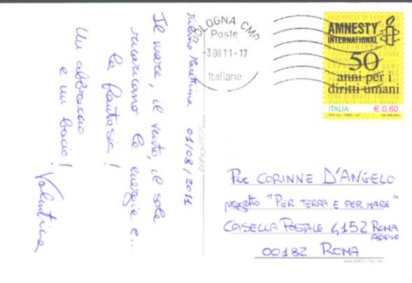 01/08/2011
Il mare, il vento, il sole
ricaricano le energie e...
la fantasia!
Un abbraccio
e un bacio!
Valentina
BOLOGNA CMP
Poste
-3.08 11-17
Italiane
AMNESTY
INTERNATIONAL
50
anni per i
diritti umani
ITALIA € 0,60
Per CORINNE D'ANGELO
progetto "PER TERRA E PER MARE"
CASELLA POSTALE 4152 ROMA
00182 ROMA